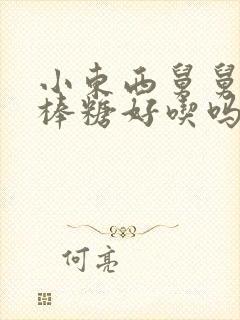 小东西舅舅
棒糖好喫吗
何亮